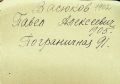 Васюков
Павел Алексеевич
1905
Пограничная 91.